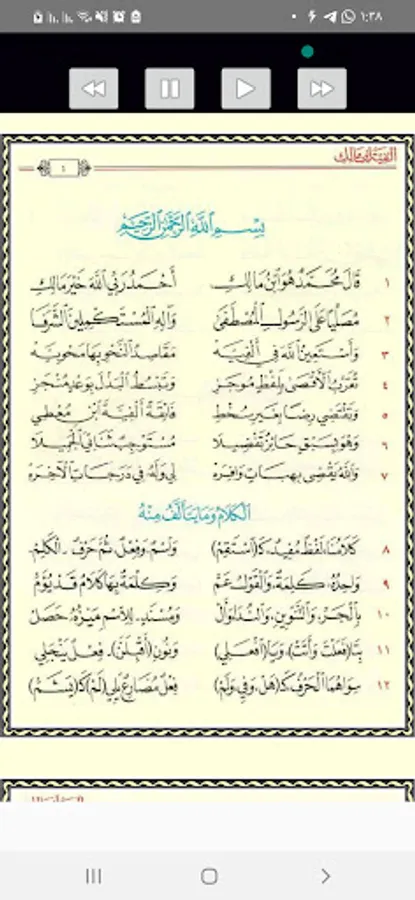 ١:٣٨
ألفية ابن مالك
١
بِسْمِ اللَّهِ الرَّحْمَٰنِ الرَّحِيمِ
١ قَالَ مُحَمَّدٌ هُوَ ابْنُ مَالِكِ أَحْمَدُ رَبِّي اللَّهَ خَيْرَ مَالِكِ
٢ مُصَلِّيًا عَلَى الرَّسُولِ الْمُصْطَفَى وَآلِهِ الْمُسْتَكْمِلِينَ الشَّرَفَا
٣ وَأَسْتَعِينُ اللَّهَ فِي أَلْفِيَّهْ مَقَاصِدُ النَّحْوِ بِهَا مَحْوِيَّهْ
٤ تُقَرِّبُ الْأَقْصَى بِلَفْظٍ مُوجَزِ وَتَبْسُطُ الْبَذْلَ بِوَعْدٍ مُنْجَزِ
٥ وَتَقْتَضِي رِضًا بِغَيْرِ سُخْطِ فَائِقَةً أَلْفِيَّةَ ابْنِ مُعْطِي
٦ وَهْوَ بِسَبْقٍ حَائِزٌ تَفْضِيلَا مُسْتَوْجِبٌ ثَنَائِيَ الْجَمِيلَا
٧ وَاللَّهُ يَقْضِي بِهِبَاتٍ وَافِرَهْ لِي وَلَهُ فِي دَرَجَاتِ الْآخِرَهْ
الْكَلَامُ وَمَا يَتَأَلَّفُ مِنْهُ
٨ كَلَامُنَا لَفْظٌ مُفِيدٌ، كَـ(اسْتَقِمْ) وَاسْمٌ، وَفِعْلٌ، ثُمَّ حَرْفٌ ـ الْكَلِمْ.
٩ وَاحِدُهُ كَلِمَةٌ، وَالْقَوْلُ عَمْ وَكِلْمَةٌ بِهَا كَلَامٌ قَدْ يُؤَمْ
١٠ بِالْجَرِّ، وَالتَّنْوِينِ، وَالنِّدَا، وَأَلْ وَمُسْنَدٍ ـ لِلِاسْمِ مَيْزُهُ حَصَلْ
١١ بِتَا (فَعَلْتَ وَأَتَتْ)، وَيَا (افْعَلِي) وَنُونِ (أَقْبِلَنَّ) ـ فِعْلٌ يَنْجَلِي
١٢ سِوَاهُمَا الْحَرْفُ كَـ(هَلْ، وَفِي وَلَمْ) فِعْلٌ مُضَارِعٌ يَلِي (لَمْ) كَـ(يَشَمْ)